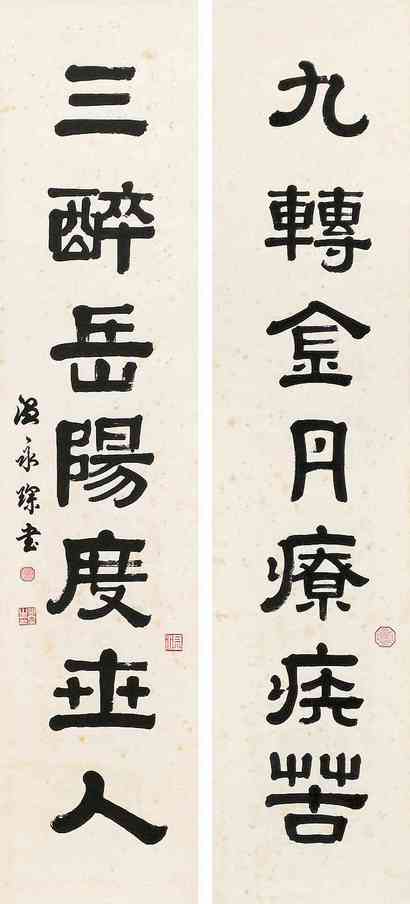 九轉金丹療疾苦
三醉岳陽度世人
溫永琛書